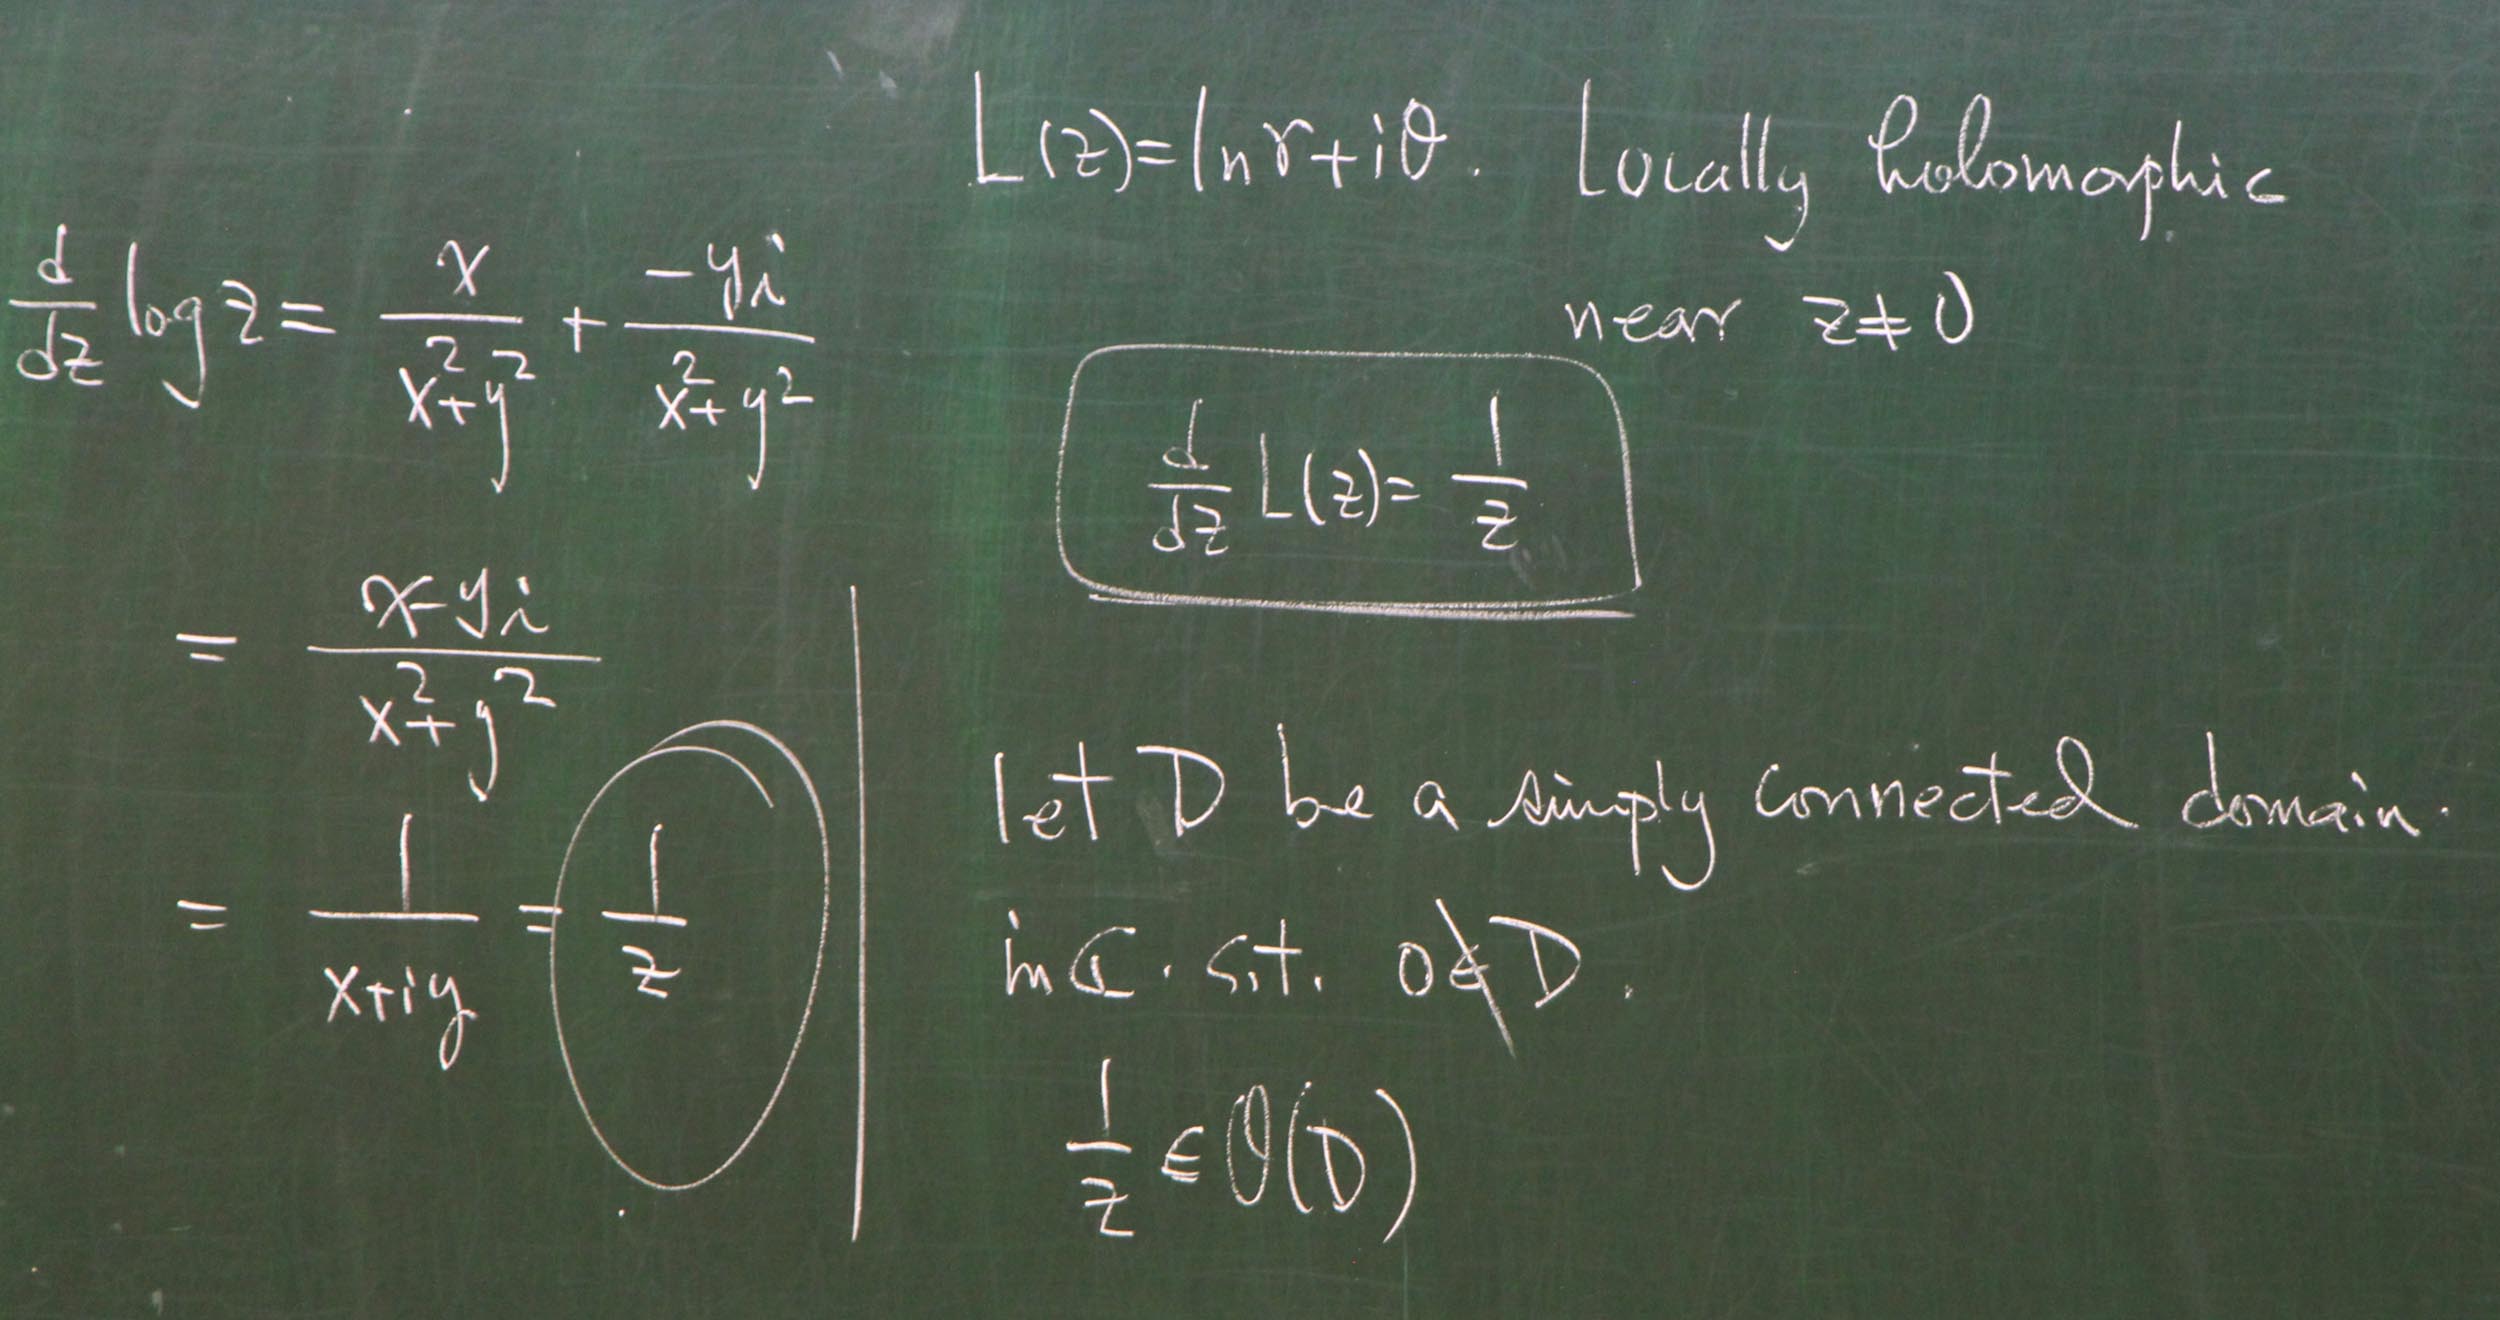 d/dz log z = x/(x²+y²) + -yi/(x²+y²)
= (x-yi)/(x²+y²)
= 1/(x+iy) = 1/z
L(z)=ln r+iθ. Locally holomorphic
near z≠0
d/dz L(z)= 1/z
Let D be a simply connected domain.
in ℂ. s.t. 0∉D.
1/z ∈ O(D)